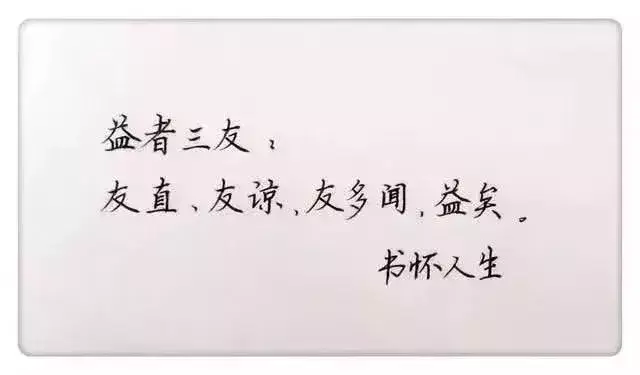 益者三友：
友直、友谅，友多闻，益矣。
书怀人生